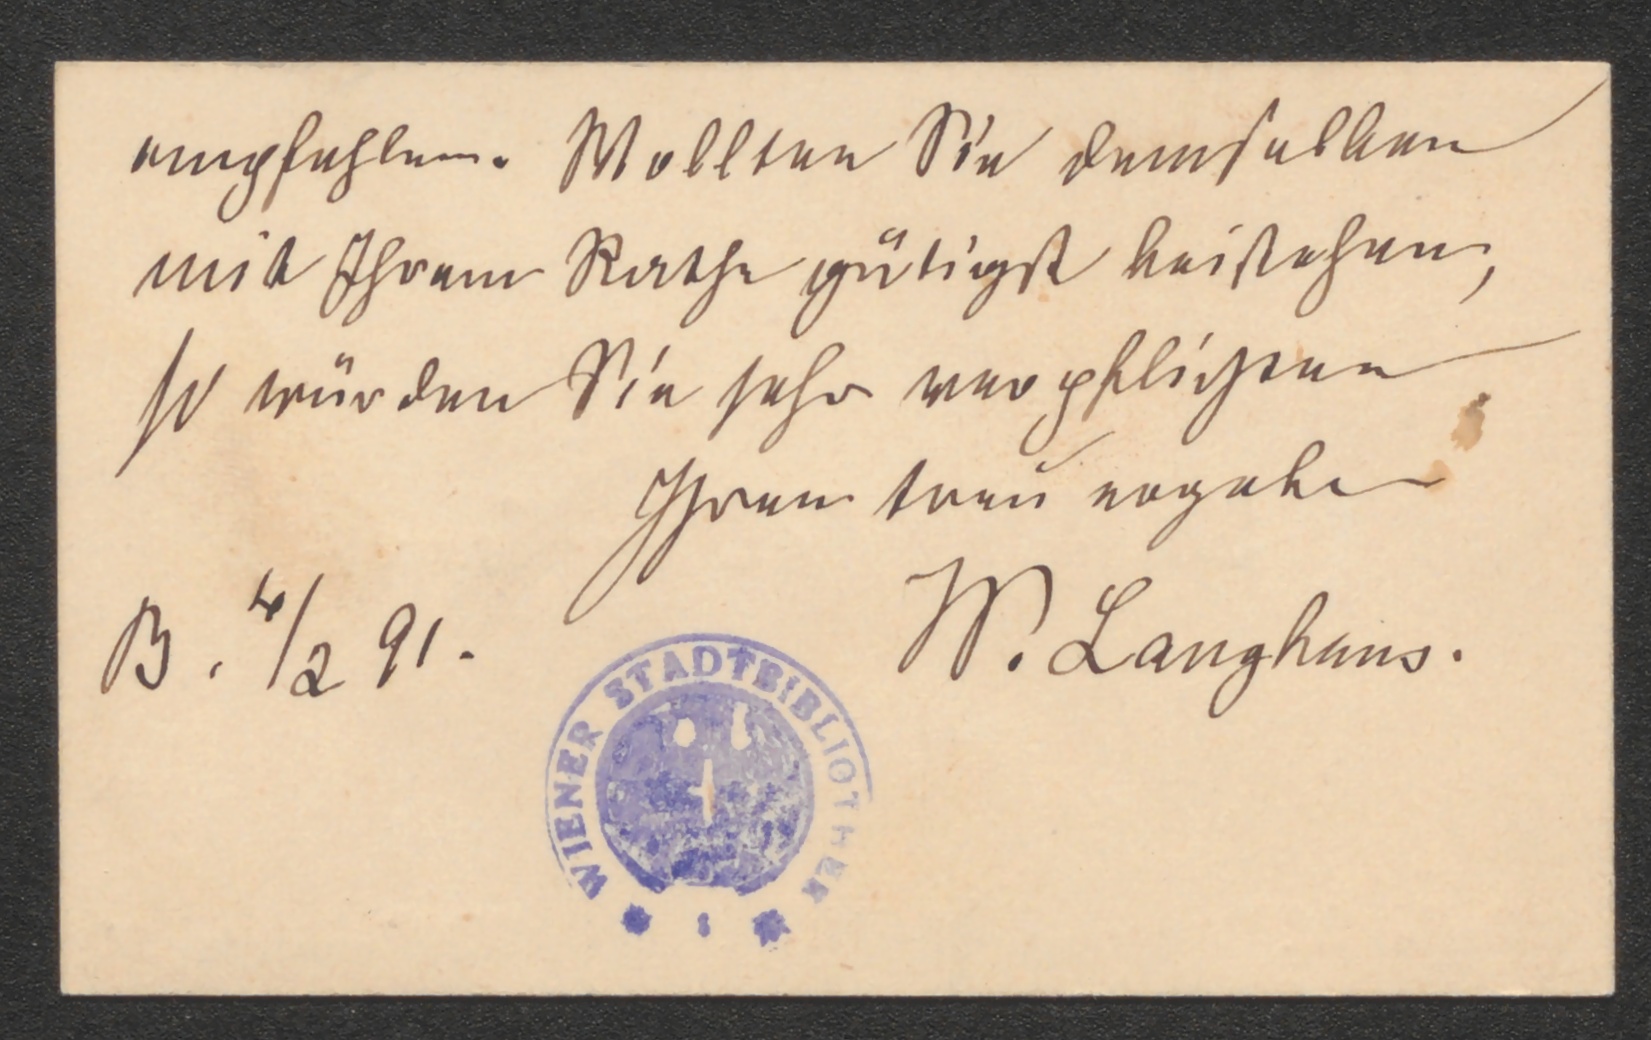 empfehlen. Wollten Sie demselben
mit Ihrem Rathe gütigst beistehen,
so würden Sie sehr verpflichten
Ihren treu ergeben
B. 4/2 91.
W. Langhans.
WIENER STADTBIBLIOTHEK